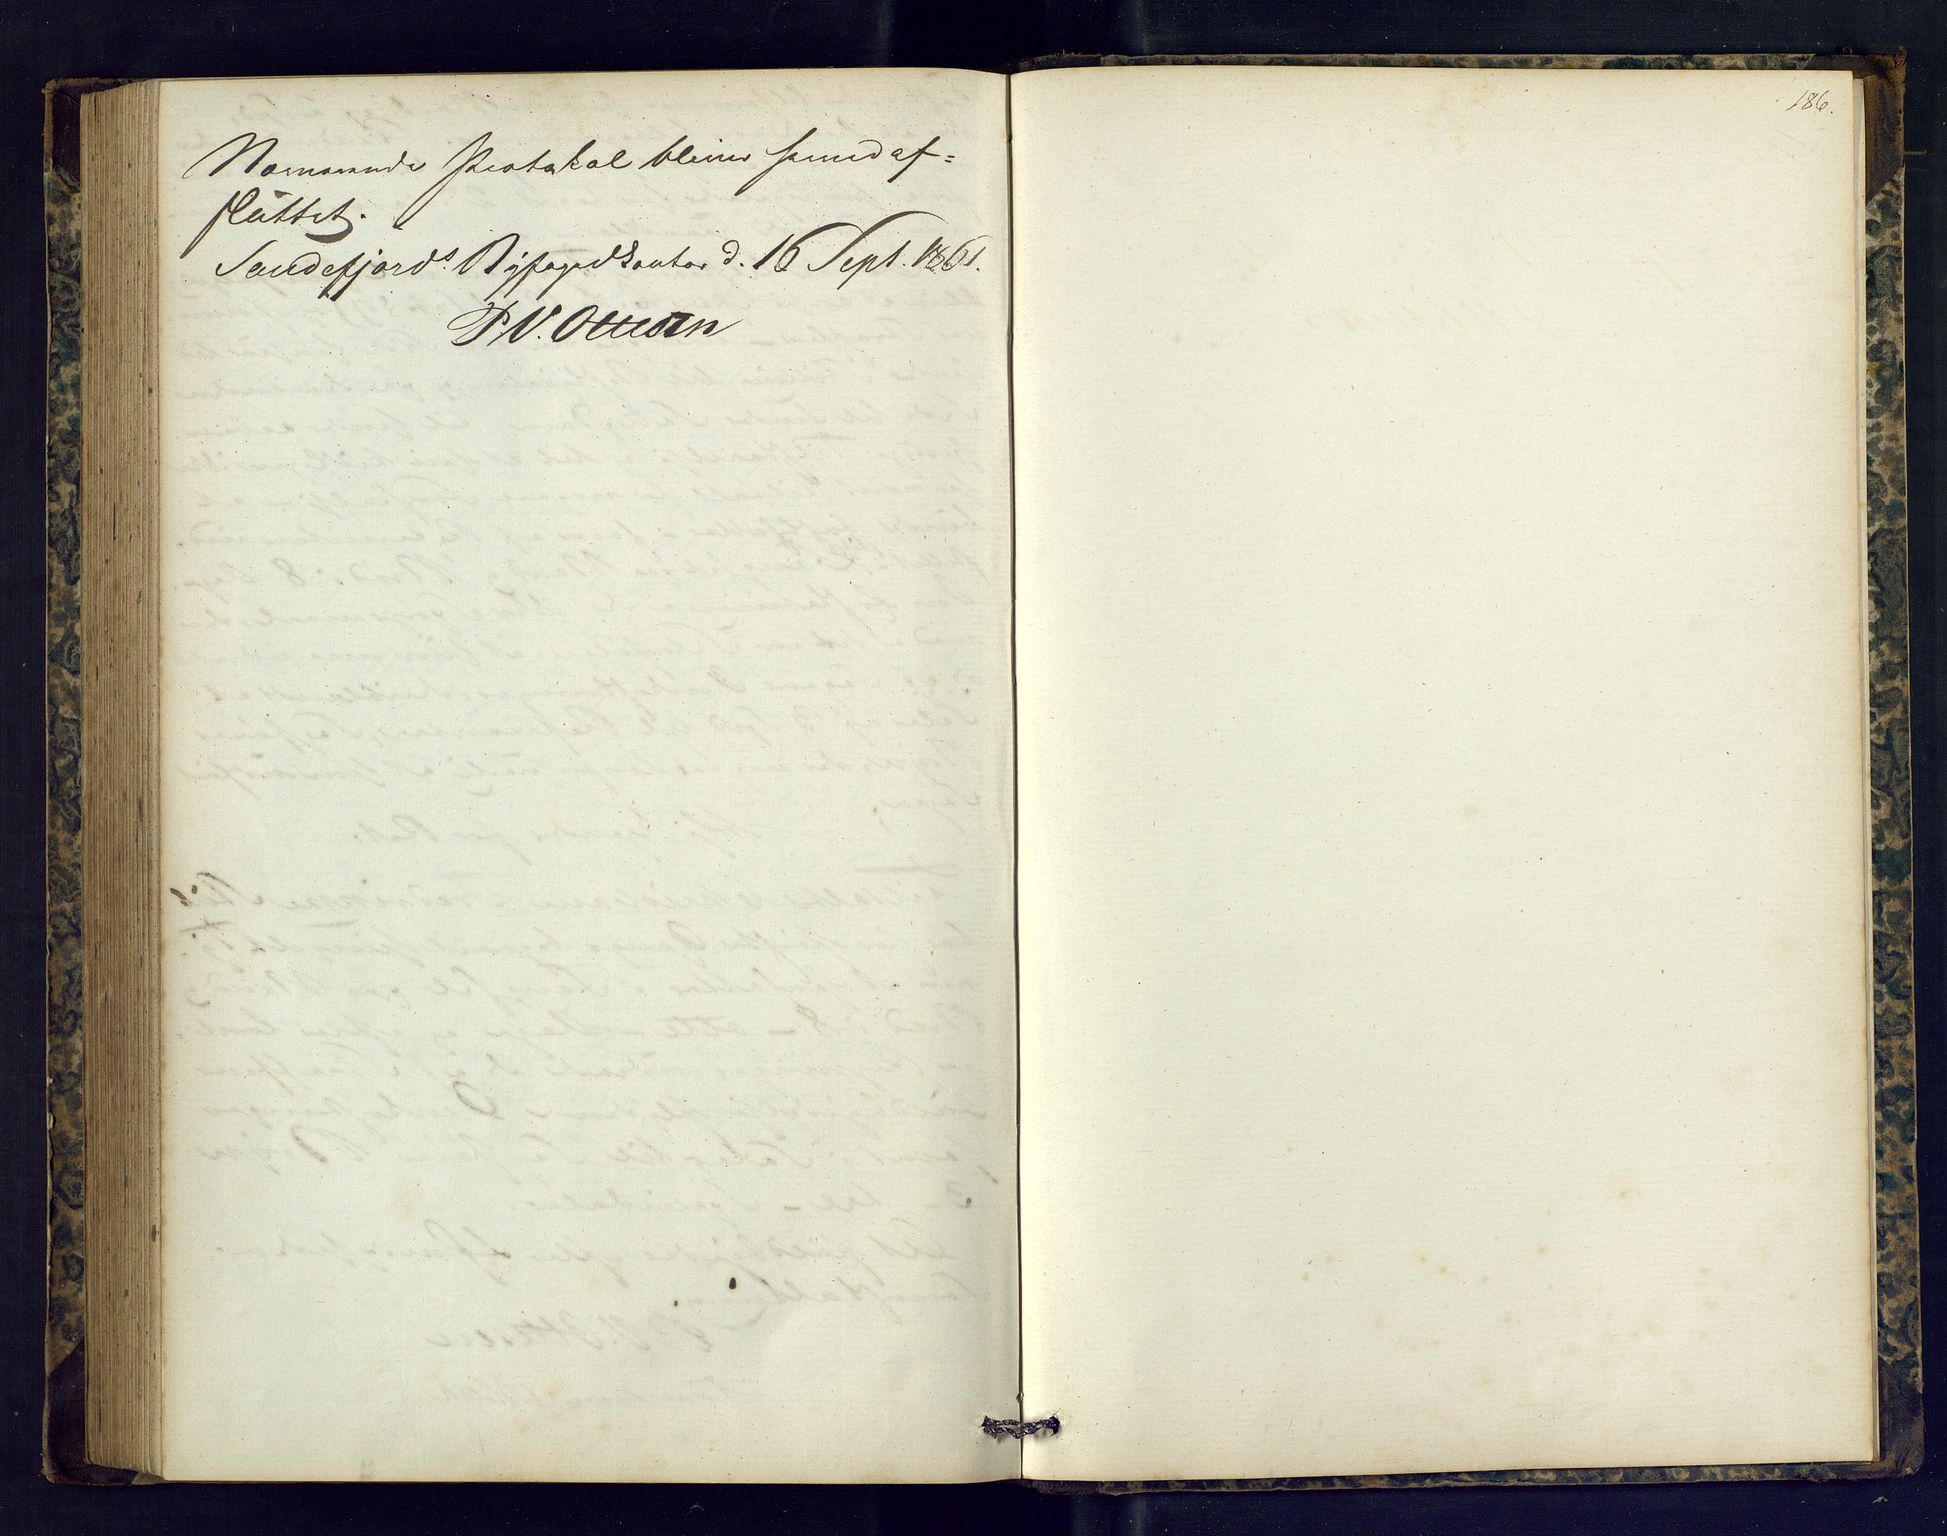 Nærværende Protokol bliver herved af=
sluttet.
Sandefjords Byfogedkontor d. 16 Sept. 1861.
P. V. Ottesen
186.